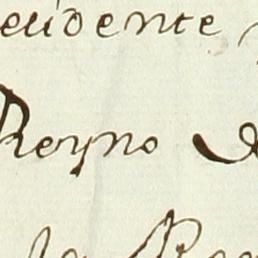 ecidente
Reyno d
la Re